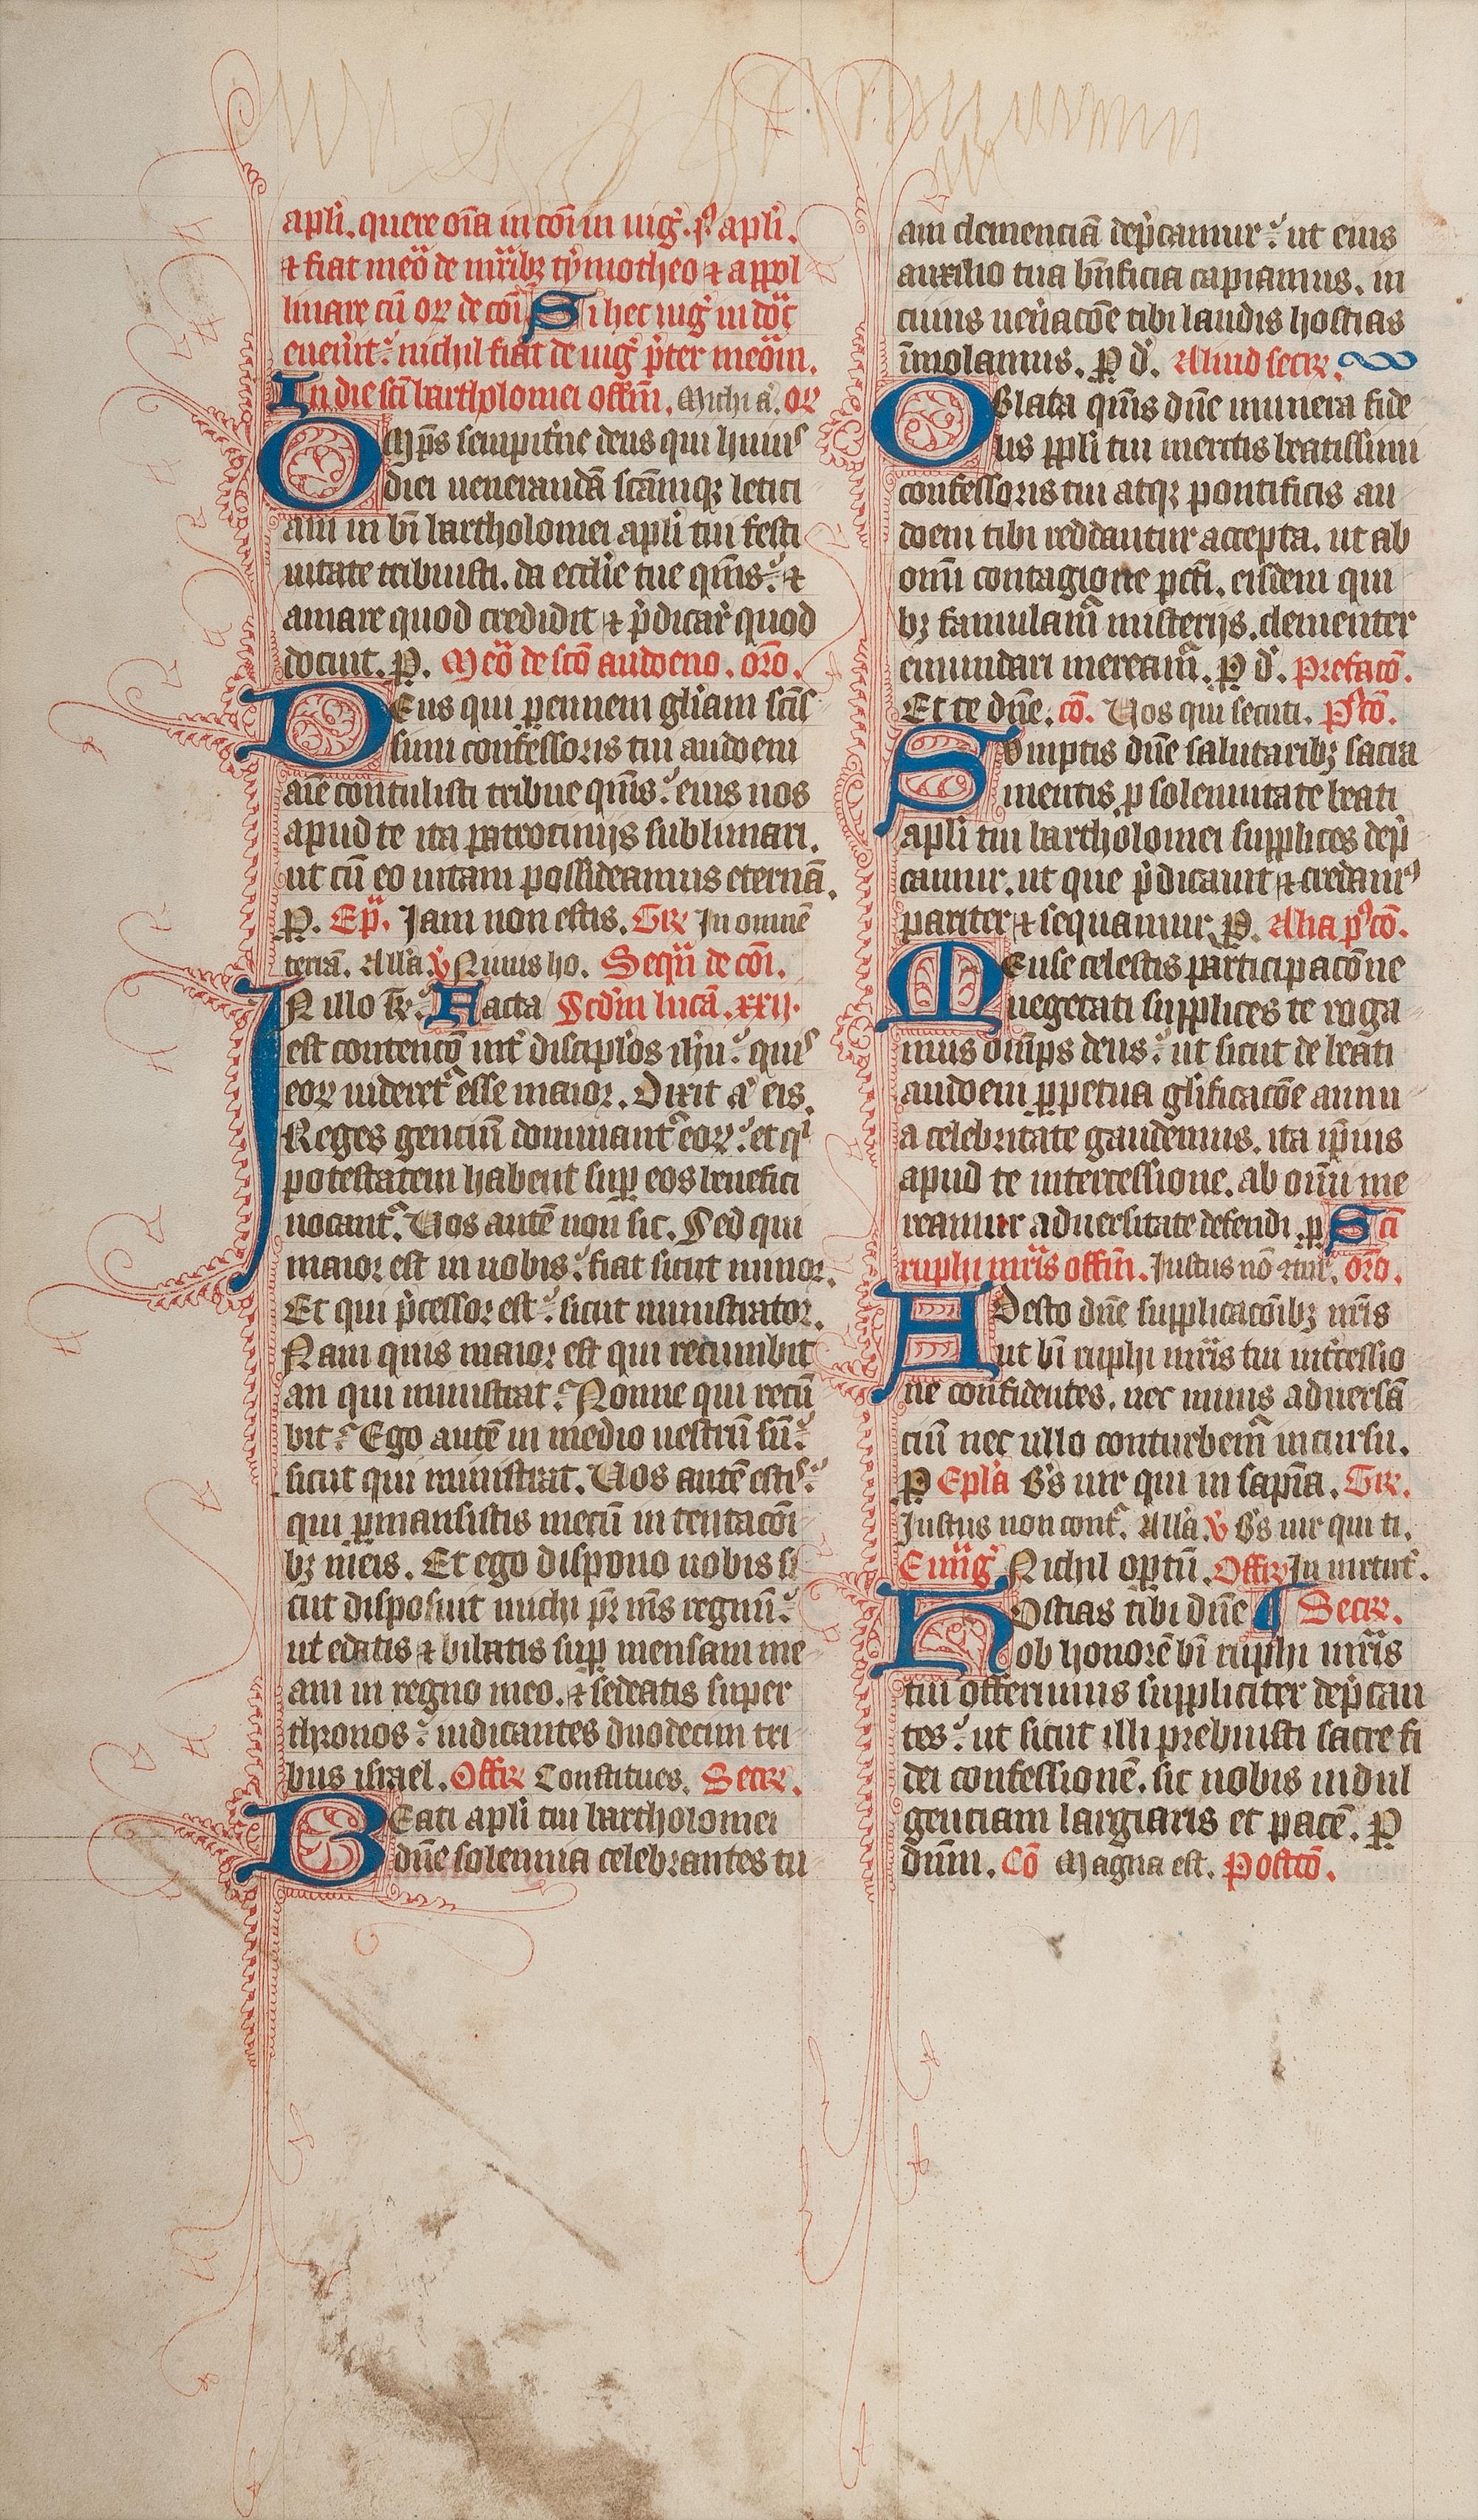 apl̄i. quere om̄a in cōi in uig̉. s̉ apl̄i.
⁊ fiat meō de mr̄ibꝫ tymotheo ⁊ appol
linare cū or̄ de cōi Si hec uig̉ in dōc̄
euen̉it: nichil fiat de uig̉ p̉ter meōm.
In die sc̄i bartholomei offm̄. Michi a. or̄
OMp̄s sempit̉ne deus qui huius
diei uenerandā sc̄amqꝫ letici
am in bī bartholomei apl̄i tui festi
uitate tribuisti. da eccl̄ie tue qm̄s: ⁊
amare quod credidit ⁊ p̉dicar̉ quod
docuit. ꝑ. Meō de sc̄o audoeno. or̄o.
DEus qui ꝑennem gl̄iam sc̄is
simi confessoris tui audoeni
aīe contulisti tribue qm̄s: eius nos
apud te ita patrocinijs sublimari.
ut cū eo uitam possideamus eternā.
ꝑ. Ep̄. Jam non estis. Gꝝ In omnē
terrā. All̄a. ꝟ Nimis ho. Seqū de cōi.
IN illo t̄ꝑe: Facta Scd̄m lucā. xxij.
est contencō int̉ discipl̄os ih̄u: quis
eoꝝ uideret᷑ esse maior. Dixit aͣ eis.
Reges genciū dominant᷑ eoꝝ: et qͥ
potestatem habent suꝑ eos benefici
uocant᷑. Uos autē non sic. Sed qui
maior est in uobis: fiat sicut minor.
Et qui p̉cessor est: sicut ministrator.
Nam quis maior est qui recumbit
an qui ministrat: Nonne qui recū
bit: Ego autē in medio uestrū sū:
sicut qui ministrat. Uos autē estis:
qui ꝑmansistis mecū in tentacōi
bꝫ meis. Et ego dispono uobis si
cut disposuit michi pr̄ m̄s regnū:
ut edatis ⁊ bibatis suꝑ mensam me
am in regno meo. ⁊ sedeatis super
thronos: iudicantes duodecim tri
bus israel. Offꝝ Constitues. Secꝝ.
BEati apl̄i tui bartholomei
dn̄e solemnia celebrantes tu
am clemenciā dep̉camur: ut eius
auxilio tua bn̄ficia capiamus. in
cuius uen̉acōe tibi laudis hostias
īmolamus. ꝑ d̉. Aliud secꝝ.
OBlata qm̄s dn̄e munera fide
lis ppl̄i tui meritis beatissimi
confessoris tui atqꝫ pontificis au
doeni tibi reddantur accepta. ut ab
omī contagione pcti̅. eisdem qui
bꝫ famulam᷑ misterijs. clementer
emundari meream᷑. ꝑ d̉. Prefacō.
Et te dn̄e. cō. Uos qui secuti. Pꝰcō.
SUmptis dn̄e salutaribꝫ sacra
mentis. ꝑ solennitate beati
apl̄i tui bartholomei supplices dep̉
camur. ut que p̉dicauit ⁊ credamꝰ
pariter ⁊ sequamur. ꝑ. Alia pꝰcō.
MEnse celestis participacōne
uegetati supplices te roga
mus om̄ps deus: ut sicut de beati
audoeni ꝑpetua gl̄ificacōe annu
a celebritate gaudemus. ita ip̄ius
apud te intercessione. ab omī me
reamur aduersitate defendi. ꝑ Sc̄i
ruphi mr̄is offm̄. Justus nō ɔtur̉. or̄o.
ADesto dn̄e supplicacōibꝫ nr̄is
ut bī ruphi mr̄is tui int̉cessio
ne confidentes. nec minis aduersā
ciū nec ullo conturbem᷑ incursu.
ꝑ Epl̄a B̄s uir qui in sapīa. Gꝝ.
Justus non cont᷑. All̄a ꝟ B̄s uir qui ti.
Euāg̉ Nichil optū. Offꝝ In uirtut̉.
HOstias tibi dn̄e ¶ Secꝝ.
ob honorē bī ruphi mr̄is
tui offerimus suppliciter dep̉can
tes: ut sicut illi prebuisti sacre fi
dei confessionē. sic nobis indul
genciam largiaris et pacē. ꝑ
dn̄m. Cō Magna est. Postcō.